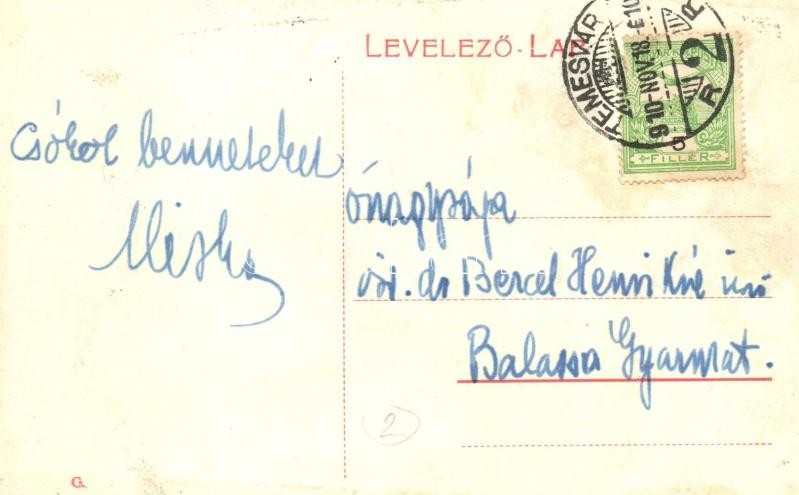 LEVELEZŐ-LAP
TEMESVÁR
910-NOV18.-É10
R 2 R
MAGYAR KIR.
FILLÉR
csókol benneteket
Miska
őnagysága
özv. dr Bercel Henrikné úrnő
Balassa Gyarmat.
2
G.